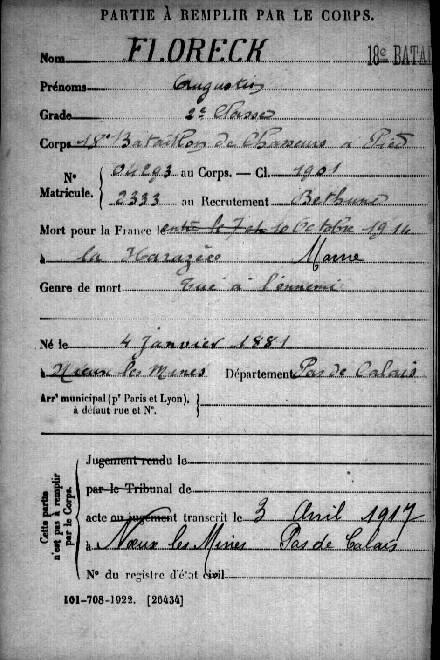 PARTIE À REMPLIR PAR LE CORPS.
Nom FLORECK
18e BATAI
Prénoms Augustin
Grade 2e Classe
Corps 18e Bataillon de Chasseurs à Pied
N° Matricule. { 04293 au Corps. — Cl. 1901
2333 au Recrutement Bethune
Mort pour la France le entre le 7 et 10 Octobre 1914
à la Harazée Marne
Genre de mort Tué à l'ennemi
Né le 4 Janvier 1881
à Nœux les Mines Département Pas de Calais
Arrt municipal (pr Paris et Lyon), à défaut rue et N°. }
Cette partie n'est pas à remplir par le Corps.
Jugement rendu le
par le Tribunal de
acte ou jugement transcrit le 3 Avril 1917
à Nœux les Mines Pas de Calais
N° du registre d'état civil
101-708-1922. [26434]